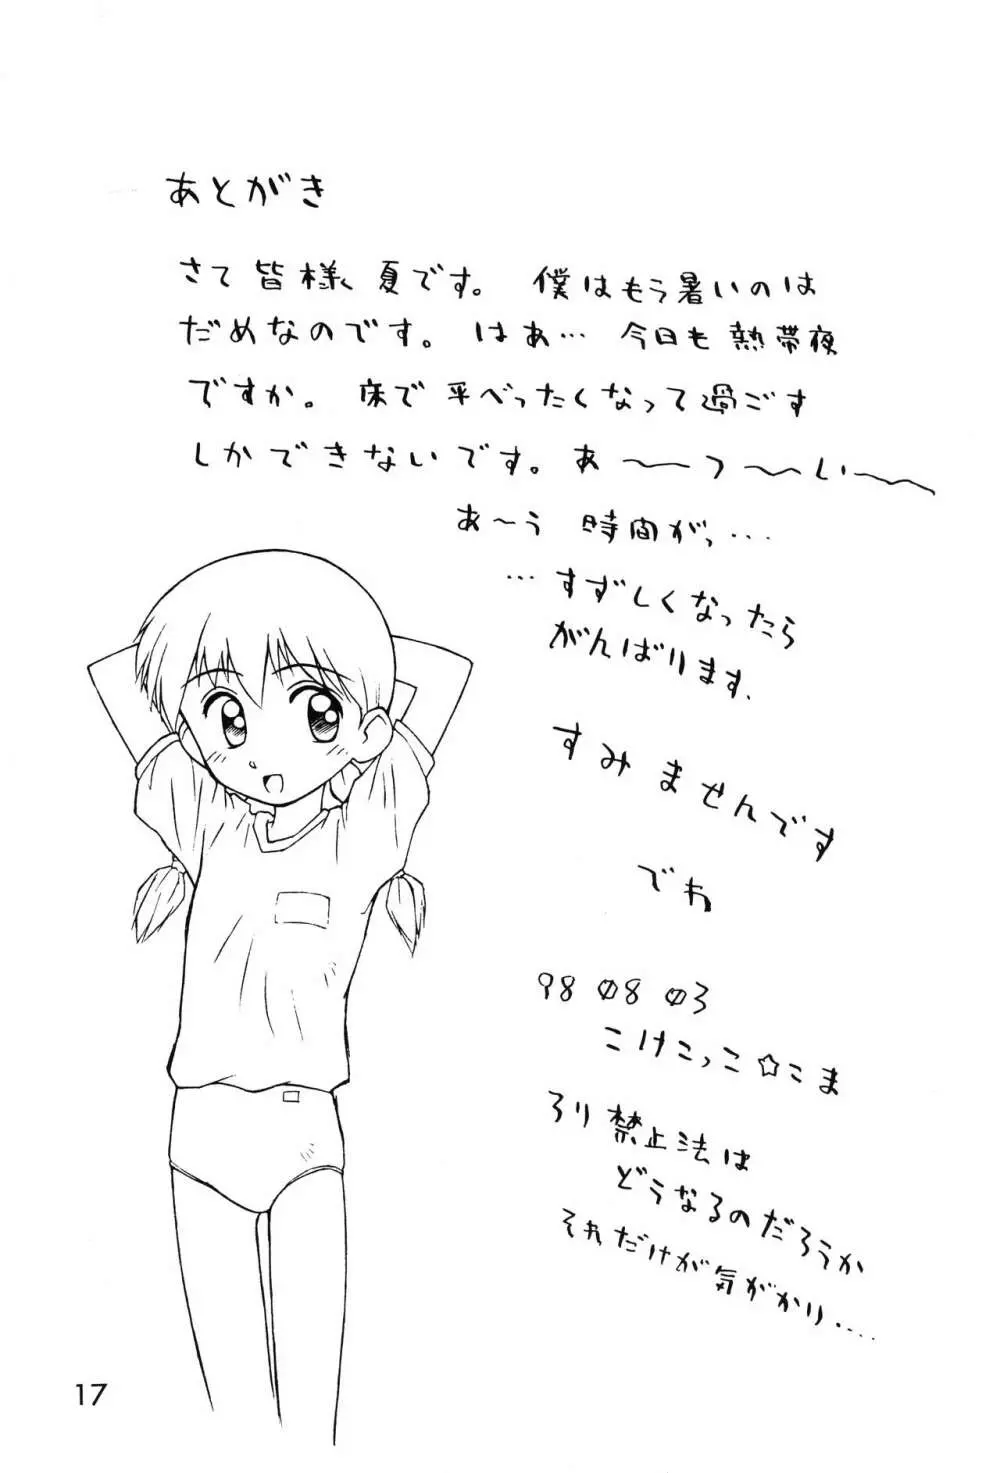 あとがき
さて皆様、夏です。 僕はもう暑いのは
だめなのです。 はあ… 今日も熱帯夜
ですか。 床で平べったくなって過ごす
しかできないです。 あ〜〜つ〜い〜〜
あ〜う 時間がっ…
…すずしくなったら
がんばります、
すみませんです
でわ
98 08 03
こけこっこ☆こま
ろり禁止法は
どうなるのだろうか
それだけが気がかり‥‥
17